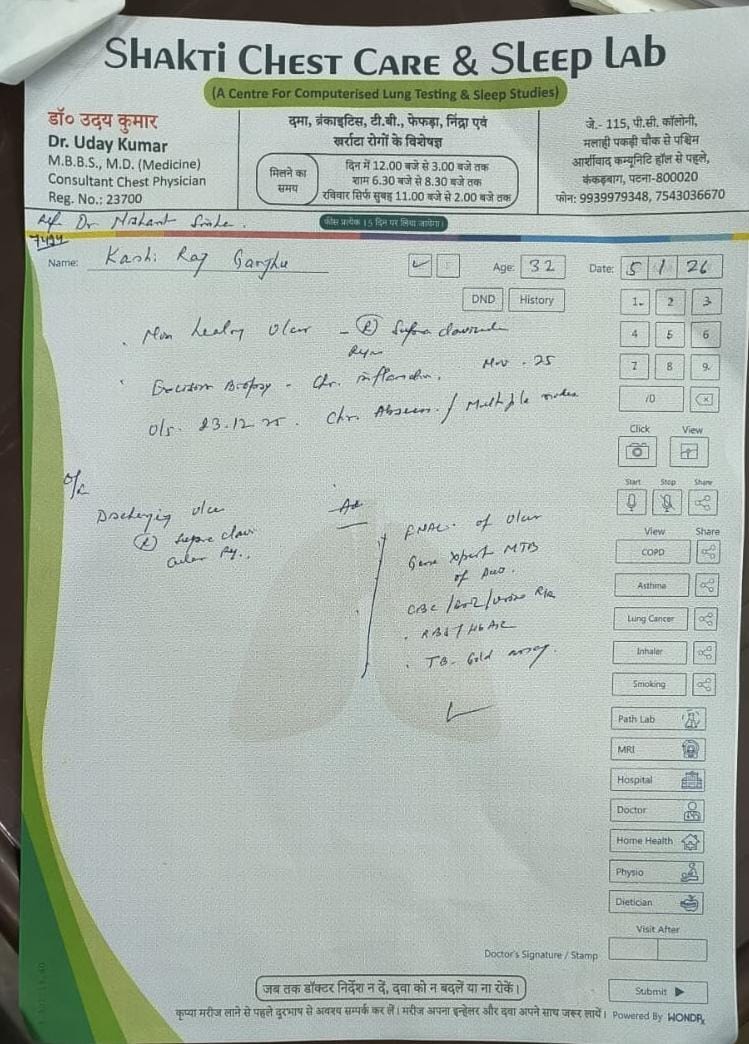 SHAKTI CHEST CARE & SLEEP LAB
(A Centre For Computerised Lung Testing & Sleep Studies)
डॉ० उदय कुमार
Dr. Uday Kumar
M.B.B.S., M.D. (Medicine)
Consultant Chest Physician
Reg. No.: 23700
दमा, ब्रंकाइटिस, टी.बी., फेफड़ा, निंद्रा एवं
खर्राटा रोगों के विशेषज्ञ
मिलने का
समय
दिन में 12.00 बजे से 3.00 बजे तक
शाम 6.30 बजे से 8.30 बजे तक
रविवार सिर्फ सुबह 11.00 बजे से 2.00 बजे तक
जे.- 115, पी.सी. कॉलोनी,
मलाही पकड़ी चौक से पश्चिम
आर्शीवाद कम्यूनिटि हॉल से पहले,
कंकड़बाग, पटना-800020
फोन: 9939979348, 7543036670
फीस प्रत्येक 15 दिन पर लिया जायेगा।
Ref Dr. Nishant
Name: Kashi Raj
Age: 32
Date: 5 1 26
DND History
1. 2 3
4 5 6
7 8 9
10
Click View
Start Stop Share
View Share
COPD
Asthma
Lung Cancer
Inhaler
Smoking
Path Lab
MRI
Hospital
Doctor
Home Health
Physio
Dietician
Visit After
Submit
. Non healing Ulcer - (R) Supra clavicular
Excision Biopsy - Chr. Nov - 25
23.12.25. Chr. Abscess / Multiple nodes
O/E
Discharging ulcer
(R) Supra clavi
cular
Ad
FNAC of Ulcer
Gene Xpert MTB
of
CBC / / Urine R/E
. RBS / HbA1C
. TB- Gold
Doctor's Signature / Stamp
जब तक डॉक्टर निर्देश न दें, दवा को न बदलें या ना रोकें।
कृप्या मरीज लाने से पहले दुरभाष से अवश्य सम्पर्क कर लें। मरीज अपना इन्हेलर और दवा अपने साथ जरूर लायें।
Powered By WONDRx